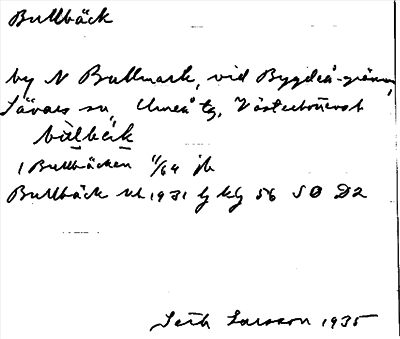 Bullbäck
by N Bullmark, vid Bygdeå-gränsen,
Sävars sn, Umeå tg, Västerbotten
bùlbè̱k
1 Bullbäcken 1/64 jb
Bullbäck 1931 kg 56 SO D2
Seth Larsson 1935